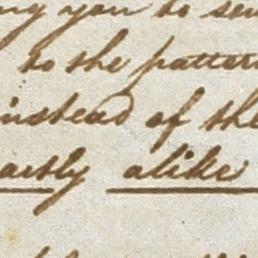 ing you to sen
to the pattern
instead of the
actly alike